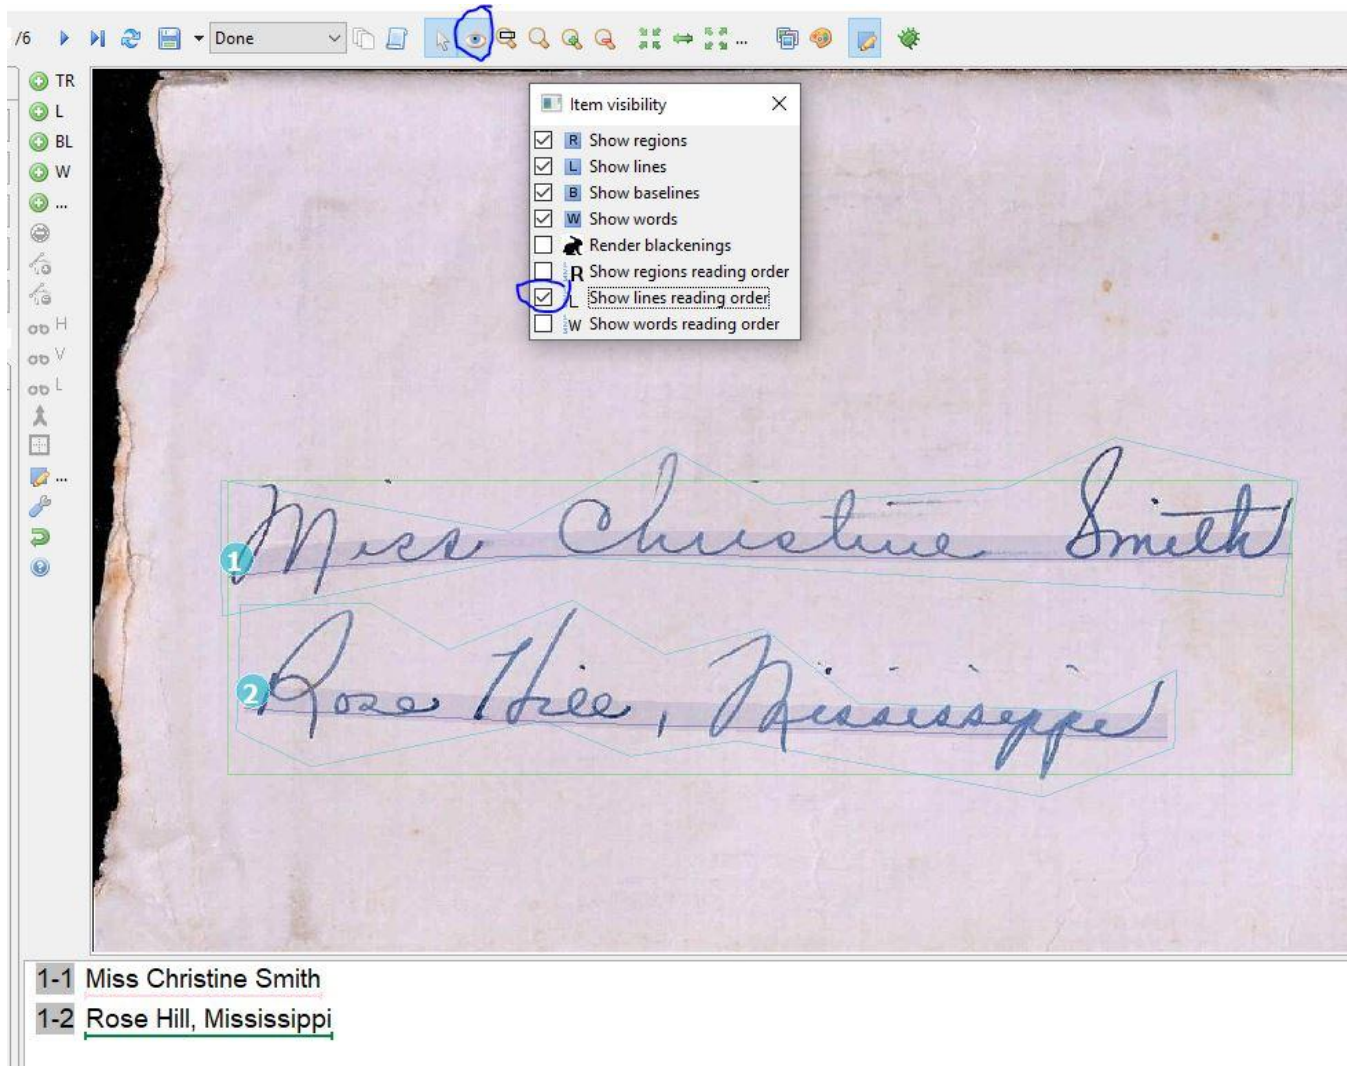 /6
Done
...
TR
L
BL
W
...
H
V
L
...
Item visibility
R Show regions
L Show lines
B Show baselines
W Show words
Render blackenings
R Show regions reading order
L Show lines reading order
W Show words reading order
1 Miss Christine Smith
2 Rose Hill, Mississippi
1-1 Miss Christine Smith
1-2 Rose Hill, Mississippi